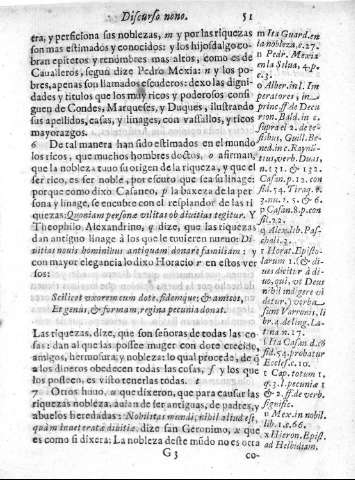 Discurso nono. 51
era, y perficiona sus noblezas, m y por las riquezas
son mas estimados y conocidos: y los hijosdalgo co-
bran epitetos y renombres mas altos, como es de
Caualleros, segun dize Pedro Mexia: n y los po-
bres, apenas son llamados escuderos: dexo las digni-
dades y titulos que los muy ricos y poderosos consi-
guen de Condes, Marqueses, y Duques, ilustrando
sus apellidos, casas, y linages, con vassallos, y ricos
mayorazgos.
6 De tal manera han sido estimados en el mundo
los ricos, que muchos hombres doctos, o afirman,
que la nobleza tuuo su origen de la riqueza, y que el
ser rico, es ser noble, por efecto que sea su linage:
porque como dixo Casaneo, p la baxeza de la per-
sona y linage, se encubre con el resplandor de las ri
quezas: Quoniam personæ vilitas ob diuitias tegitur. Y
Theophilo Alexandrino, q dize, que las riquezas
dan antiguo linage à los que le tuuieren nueuo: Di-
uitias nouis hominibus antiquam donare familiam: y
con mayor elegancia lo dixo Horacio r en estos ver
sos:
Scilicet vxorem cum dote, fidemque, & amicos,
Et genus, & formam, regina pecunia donat.
Las riquezas, dize, que son señoras de todas las co-
sas: dan al que las possee muger con dote crecido,
amigos, hermosura, y nobleza: lo qual procede, de q
a los dineros obedecen todas las cosas, s y los que
los posseen, es visto tenerlas todas. t
7 Otros huuo, u que dixeron, que para causar las
riquezas nobleza, auian de ser antiguas, de padres, y
abuelos heredadas: Nobilitas mundi, nihil aliud est,
quàm inueteratæ diuitiæ, dize san Geronimo, x que
es como si dixera: La nobleza deste mũdo no es otra
G 3 co-
m Ita Guard. en
la nobleza, c. 27.
n Pedr. Mexia
en la Silua, 4. p.
c. 3.
o Alber. in l. Im
peratores, in
princ. ff. de Decu
rion. Bald. in c.
supra el 2. de te-
stibus, Guill. Be-
ned. in c. Rayniu
tius, verb. Duas,
n. 131. & 132.
Casan. p. 12. con
sid. 54. Tiraq. c.
3. nu. 2. 5. & 6.
p Casan. 8. p. con
sid. 22.
q Alex. lib. Pas-
chali. 3.
r Horat. Episto-
larum 1. & di-
ues diuitur à di-
uus, qui, vt Deus
nihil indigere vi
detur. verba
sum Varronis, li
bro 4. de ling. La-
tina. n. 17.
s Ita Casan. d. co
sid. 54. probatur
Eccles. c. 10.
t Cap. totum 1.
q. 3. l. pecuniæ 1
& 2. ff. de verb.
signific.
v Mex. in nobil.
lib. 1. c. 66.
x Hieron. Epist.
ad Helbidiam.